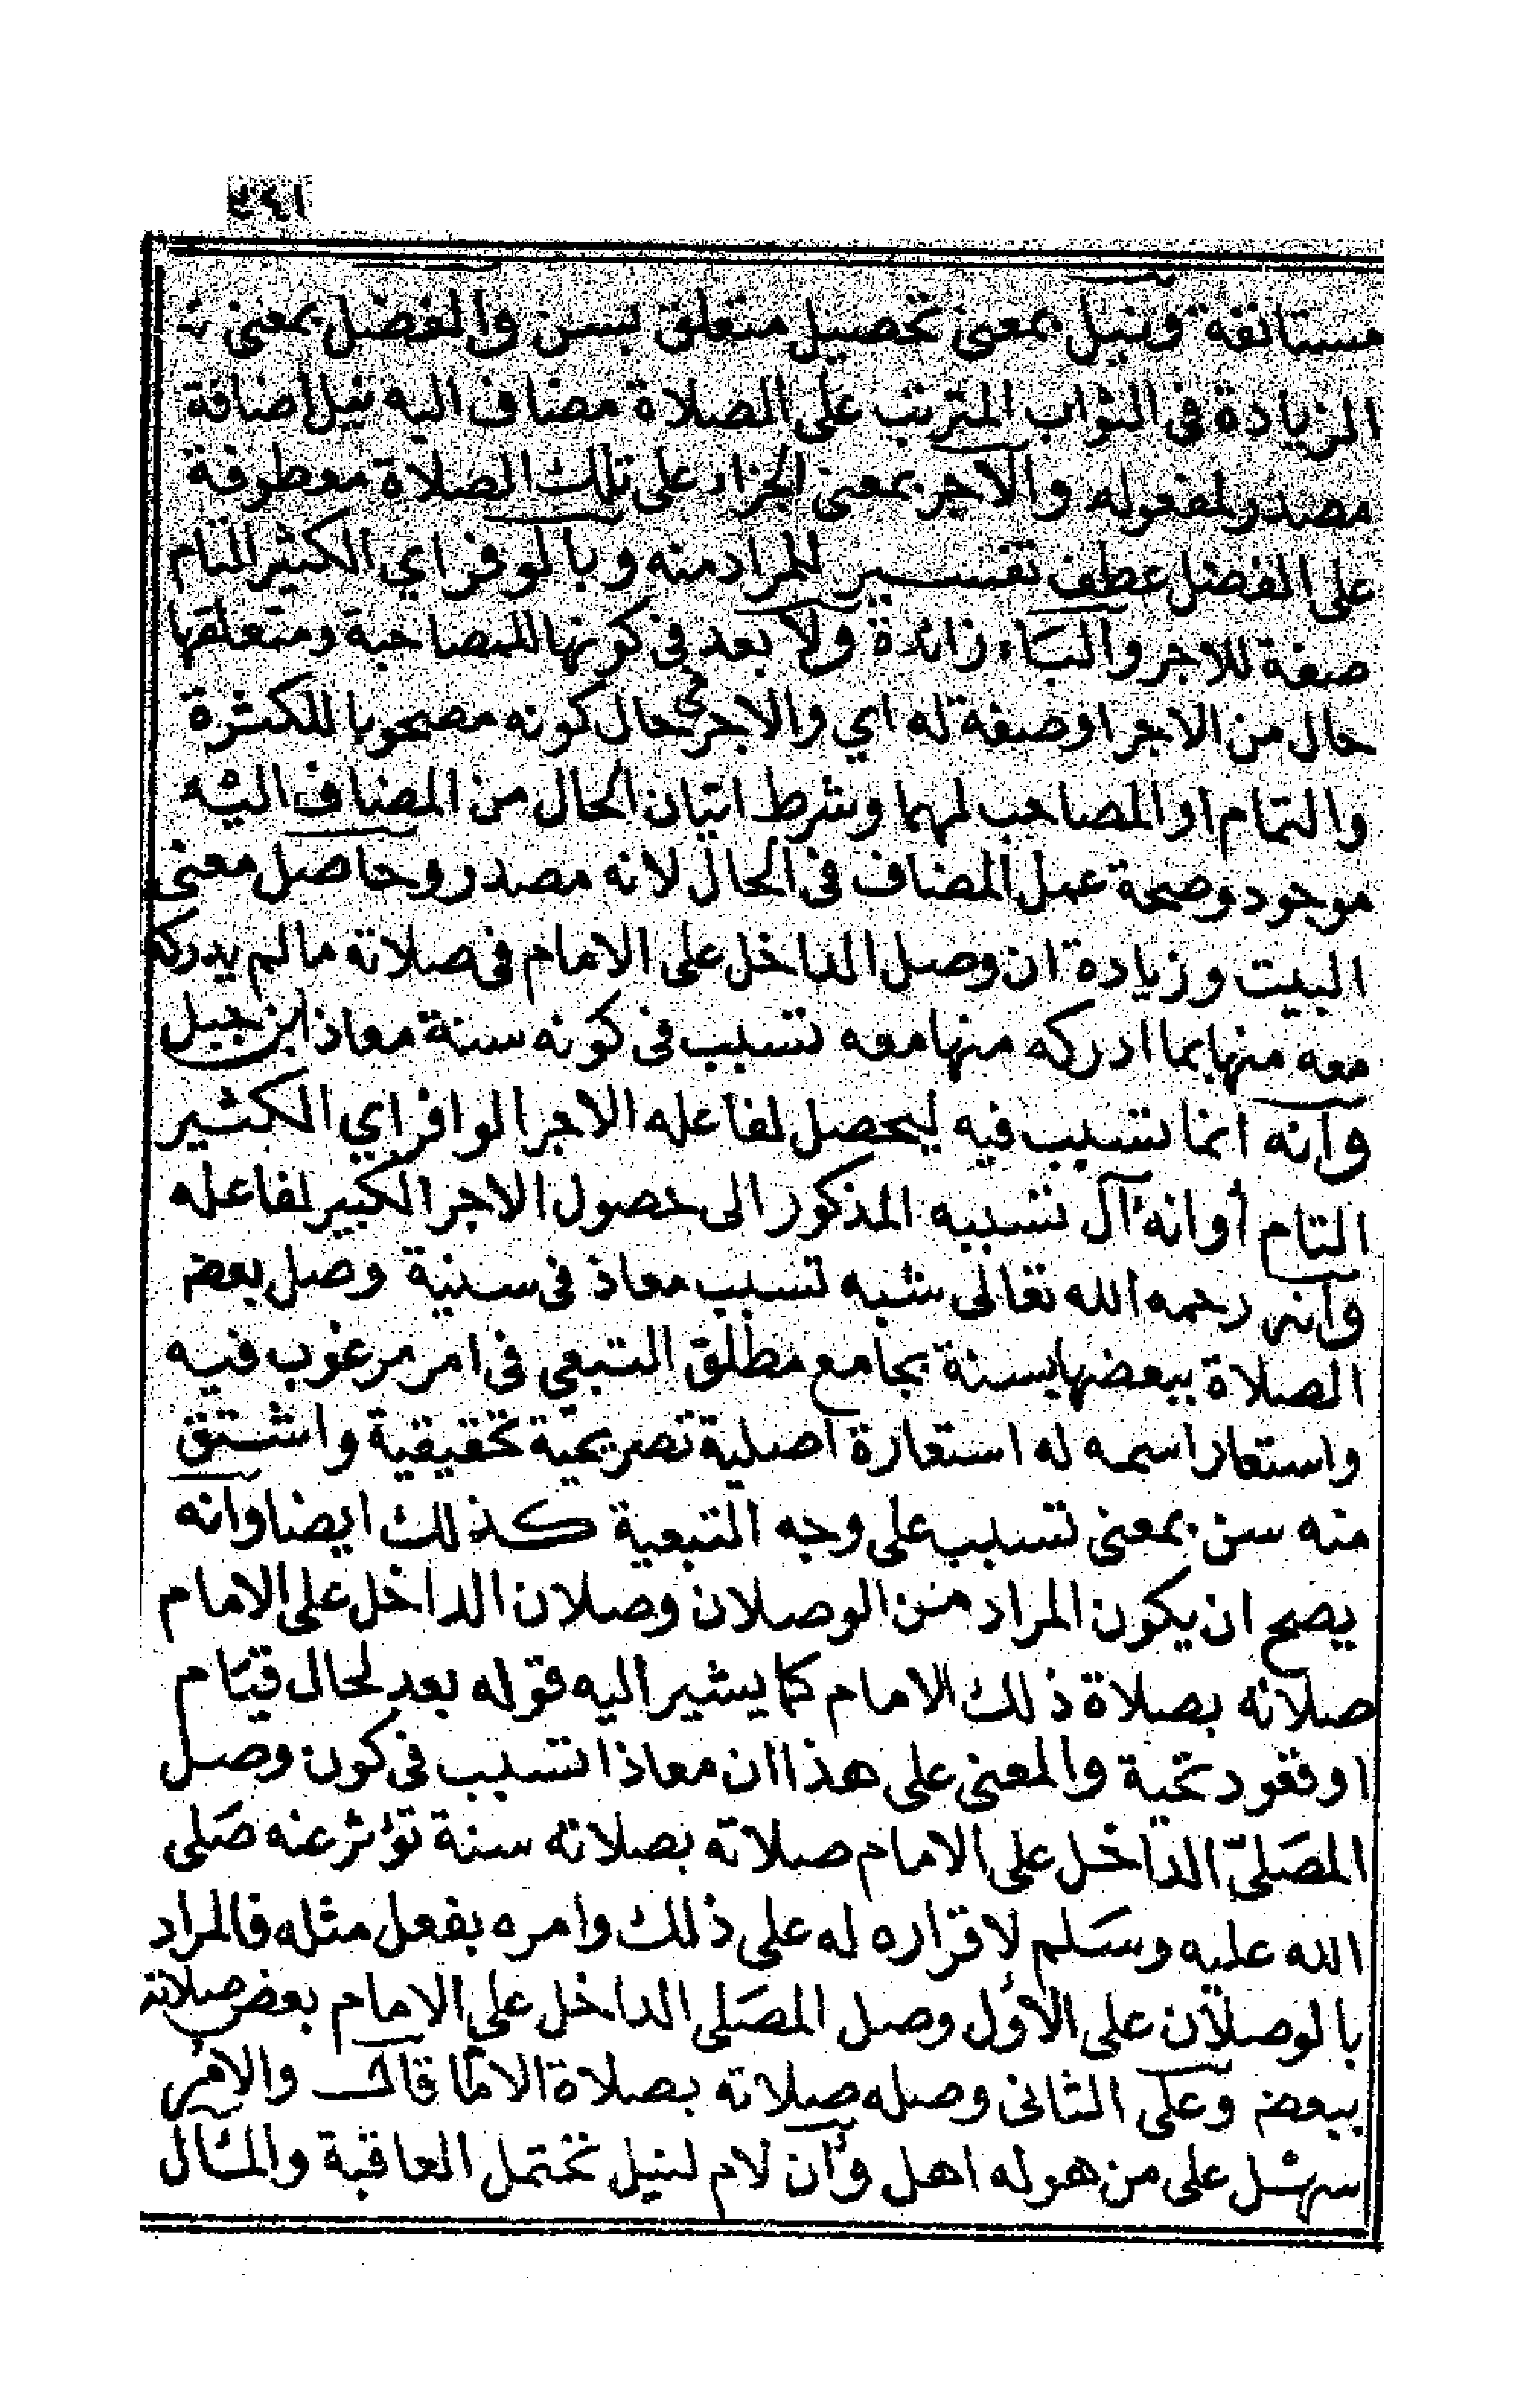 مستانفة ونيل بمعنى تحصيل متعلق بسن والفضل بمعنى
الزيادة في الثواب المترتب على الصلاة مضاف اليه نيل اضافة
مصدر لمفعوله والاجر بمعنى الجزاء على تلك الصلاة معطوفة
على الفضل عطف تفسير للمراد منه وبالوفر اي الكثير التام
صفة للاجر والباء زائدة ولا بعد في كونها للمصاحبة ومتعلقها
حال من الاجر او صفة له اي والاجر حال كونه مصحوبا للكثرة
والتمام او المصاحب لهما وشرط اتيان الحال من المضاف اليه
موجود وصحة عمل المضاف في الحال لانه مصدر وحاصل معنى
البيت وزيادة ان وصل الداخل على الامام في صلاته ما لم يدركه
معه منها بما ادركه منها معه تسبب في كونه سنة معاذ ابن جبل
وانه انما تسبب فيه ليحصل لفاعله الاجر الوافر اي الكثير
التام أوانه آل تسببه المذكور الى حصول الاجر الكبير لفاعله
وانه رحمه الله تعالى شبه تسبب معاذ في سنية وصل بعض
الصلاة ببعضها بسنة بجامع مطلق التبعي في امر مرغوب فيه
واستعار اسمه له استعارة اصلية تصريحية تحقيقية واشتق
منه سن بمعنى تسبب على وجه التبعية كذلك ايضا وانه
يصح ان يكون المراد من الوصلان وصلان الداخل على الامام
صلاته بصلاة ذلك الامام كما يشير اليه قوله بعد لحال قيام
او قعود تحية والمعنى على هذا ان معاذا تسبب في كون وصل
المصلي الداخل على الامام صلاته بصلاته سنة تؤثر عنه صلى
الله عليه وسلم لاقراره له على ذلك وامره بفعل مثله فالمراد
بالوصلان على الأول وصل المصلى الداخل على الامام بعض صلاته
ببعض وعلى الثانى وصله صلاته بصلاة الامام والامر
سهل على من هو له اهل وان لام لنيل تحتمل العاقبة والمئال